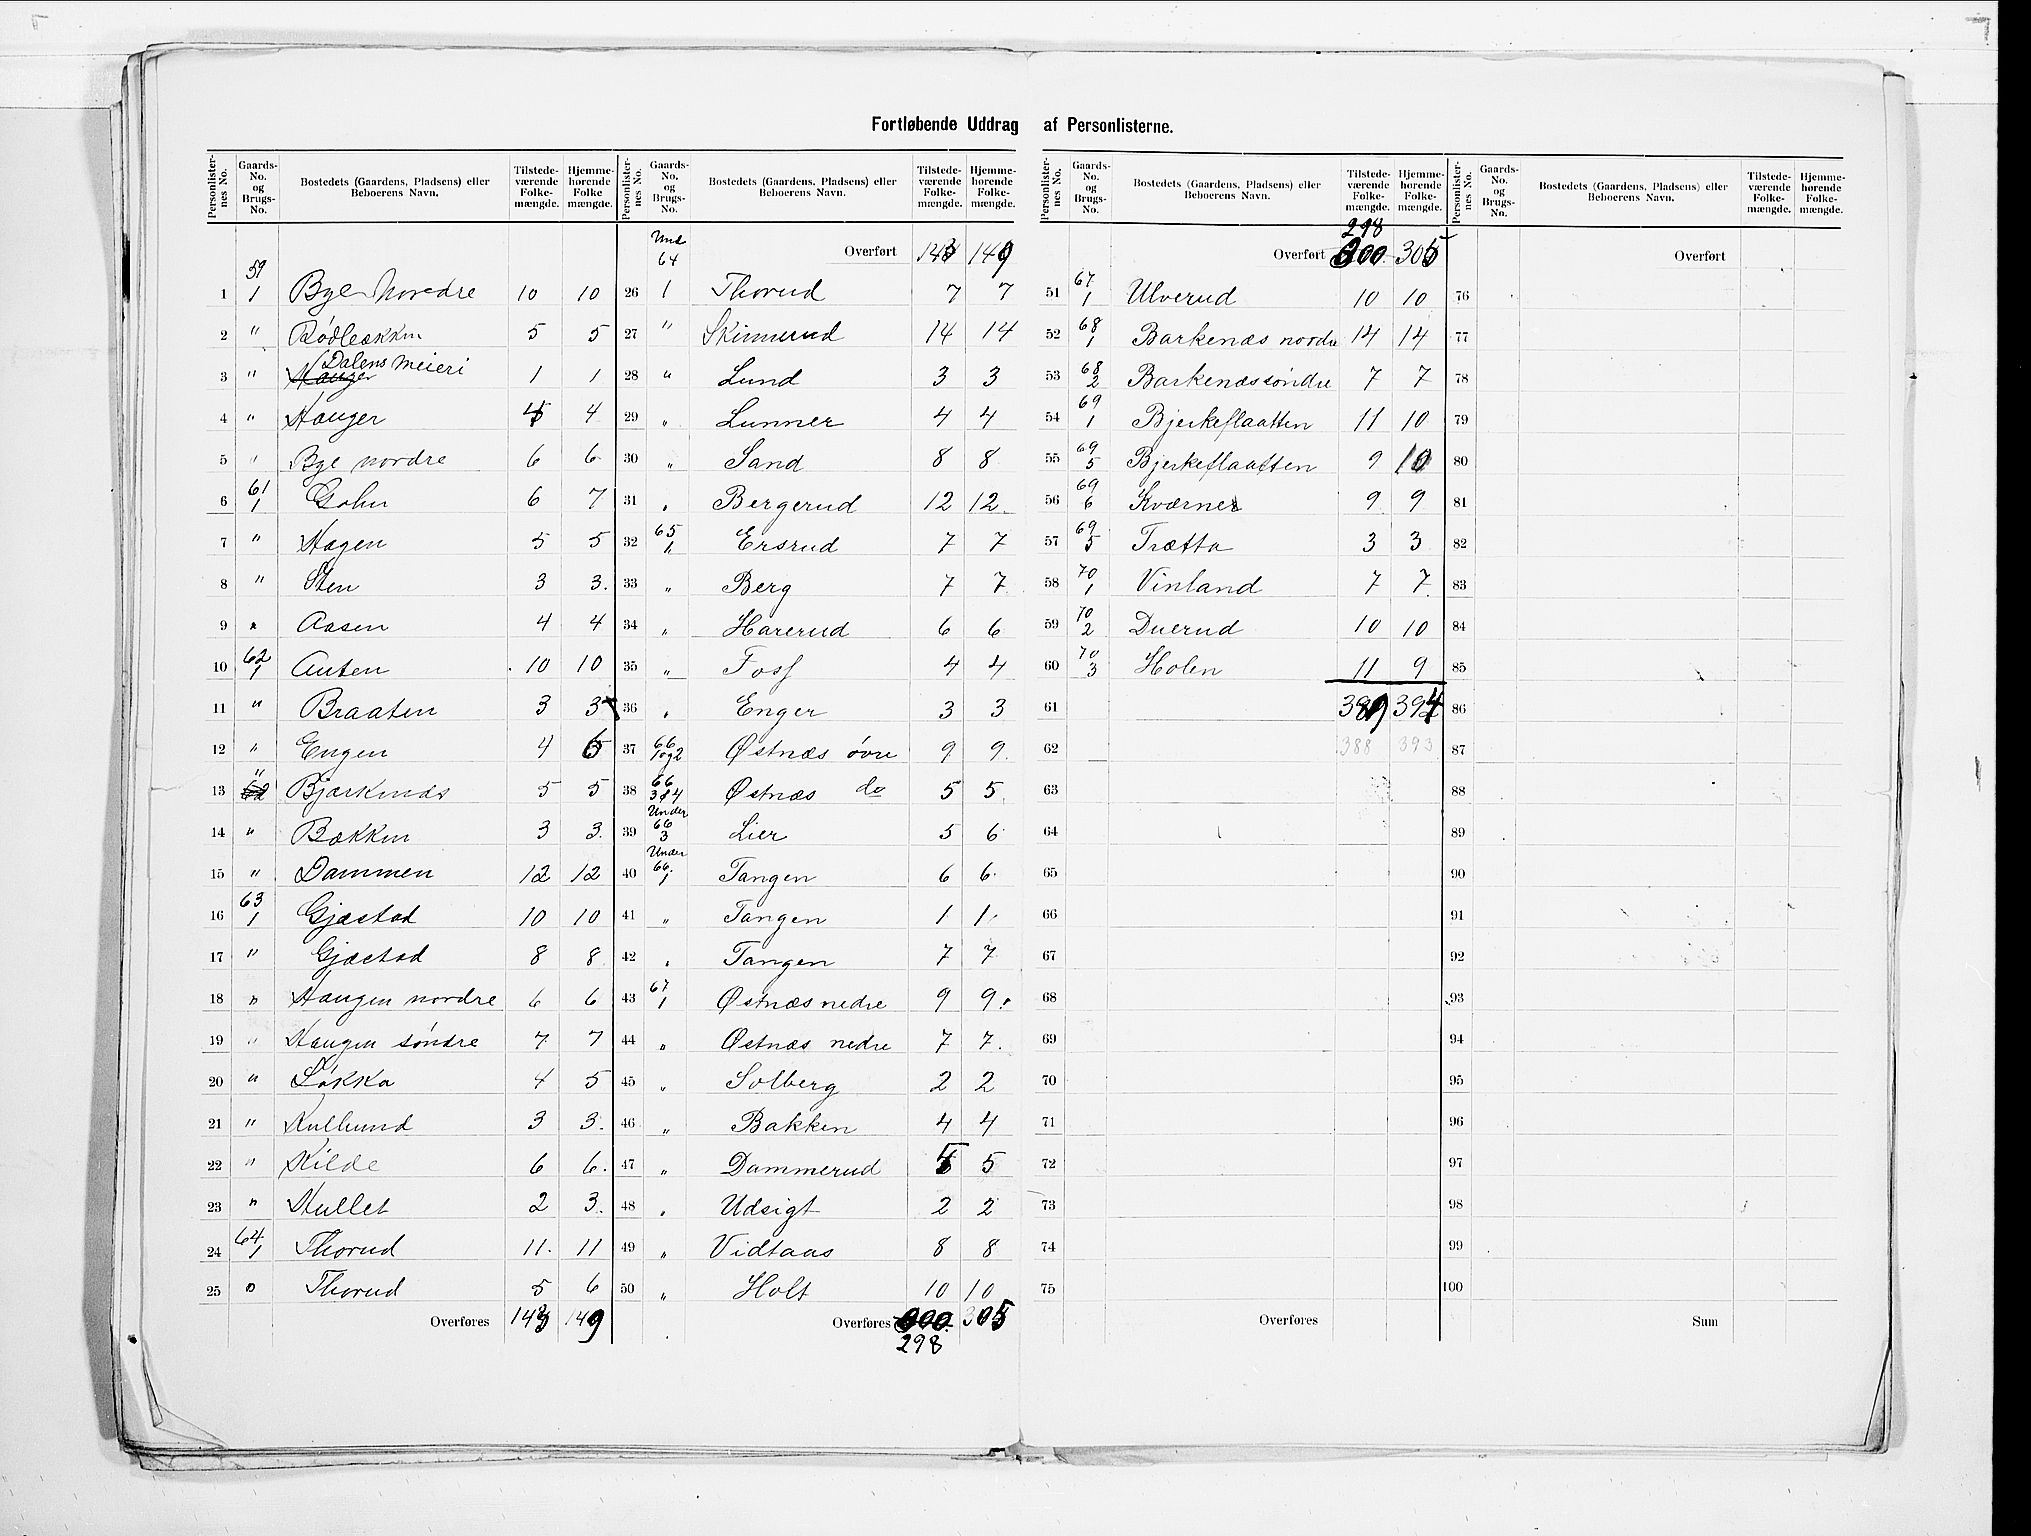 Fortløbende Uddrag af Personlisterne.
Personlisternes No. Gaards-No. og Brugs-No. Bostedets (Gaardens, Pladsens) eller Beboerens Navn. Tilstedeværende Folkemængde. Hjemmehørende Folkemængde.
59
1 1 Bye Nordre 10 10
2 " Rödbækken 5 5
3 " Dalens Meieri 1 1
4 " Hauger 4 4
5 " Bye nordre 6 6
6 61/1 Gohn 6 7
7 " Hagen 5 5
8 " Sten 3 3.
9 " Aasen 4 4
10 62/1 Auten 10 10
11 " Braaten 3 3
12 " Engen 4 5
13 " Bjørkenæs 5 5
14 " Bækken 3 3.
15 " Dammen 12 12
16 63/1 Gjæstad 10 10
17 " Gjæstad 8 8
18 " Haugen nordre 6 6
19 " Haugen søndre 7 7
20 " Løkka 4 5
21 " Hullund 3 3.
22 " Kilde 6 6.
23 " Hullet 2 3.
24 64/1 Thorud 11. 11
25 " Thorud 5 6
Overføres 143 149
Und 64 Overført 143 149
26 1 Thorud 7 7
27 " Skinnerud 14 14
28 " Lund 3 3
29 " Lunner 4 4
30 " Sand 8 8
31 " Bergerud 12 12
32 65/1 Ersrud 7 7
33 " Berg 7 7
34 " Harerud 6 6
35 " Foss 4 4
36 " Enger 3 3
37 66 1og2 Østnæs övre 9 9
38 66 3&4 Østnæs do 5 5
39 Under 66 3 Lier 5 6
40 Under 66 1 Tangen 6 6
41 " Tangen 1 1
42 " Tangen 7 7
43 67/1 Østnæs nedre 9 9
44 " Østnæs nedre 7 7.
45 " Solberg 2 2
46 " Bakken 4 4
47 " Dammerud 5 5
48 " Udsigt 2 2
49 " Vidtaas 8 8
50 " Holt 10 10
Overføres 300 305
298
298
Overført 300 305
51 67/1 Ulverud 10 10
52 68/1 Barkenæs nordre 14 14
53 68/2 Barkenæs söndre 7 7
54 69/1 Bjerkeflaatten 11 10
55 69/5 Bjerkeflaatten 9 10
56 69/6 Kværner 9 9
57 69/5 Trætta 3 3
58 70/1 Vinland 7 7
59 70/2 Duerud 10 10
60 70/3 Holen 11 9
61 389 394
62 388 393
63
64
65
66
67
68
69
70
71
72
73
74
75
Overføres
Overført
76
77
78
79
80
81
82
83
84
85
86
87
88
89
90
91
92
93
94
95
96
97
98
99
100
Sum